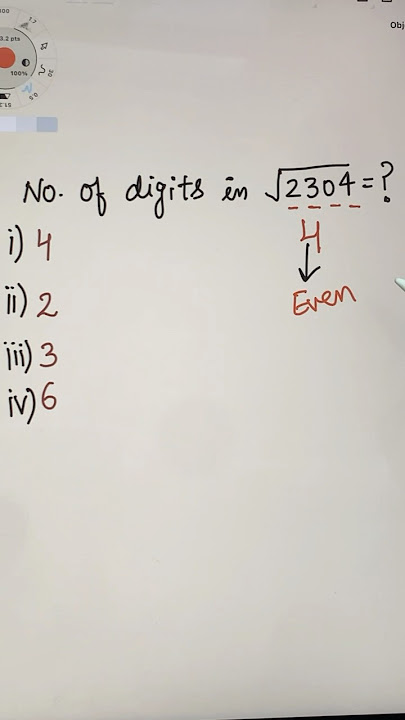 Obj
3.2 pts
100%
No. of digits in √2304 = ?
i) 4
4
Even
ii) 2
iii) 3
iv) 6